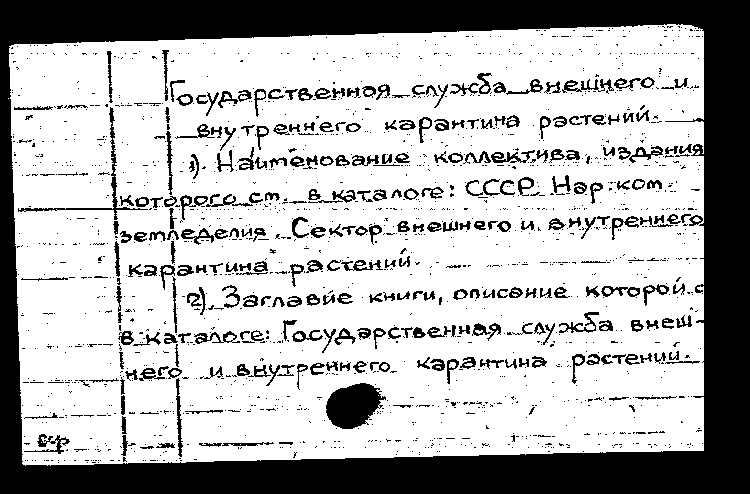 Государственная служба внешнего и
внутреннего карантина растений.
1). Наименование коллектива, издания
которого см. в каталоге: СССР. Нар. ком.
земледелия. Сектор внешнего и внутреннего
карантина растений.
2). Заглавие книги, описание которой с
в каталоге: Государственная служба внеш-
него и внутреннего карантина растений.